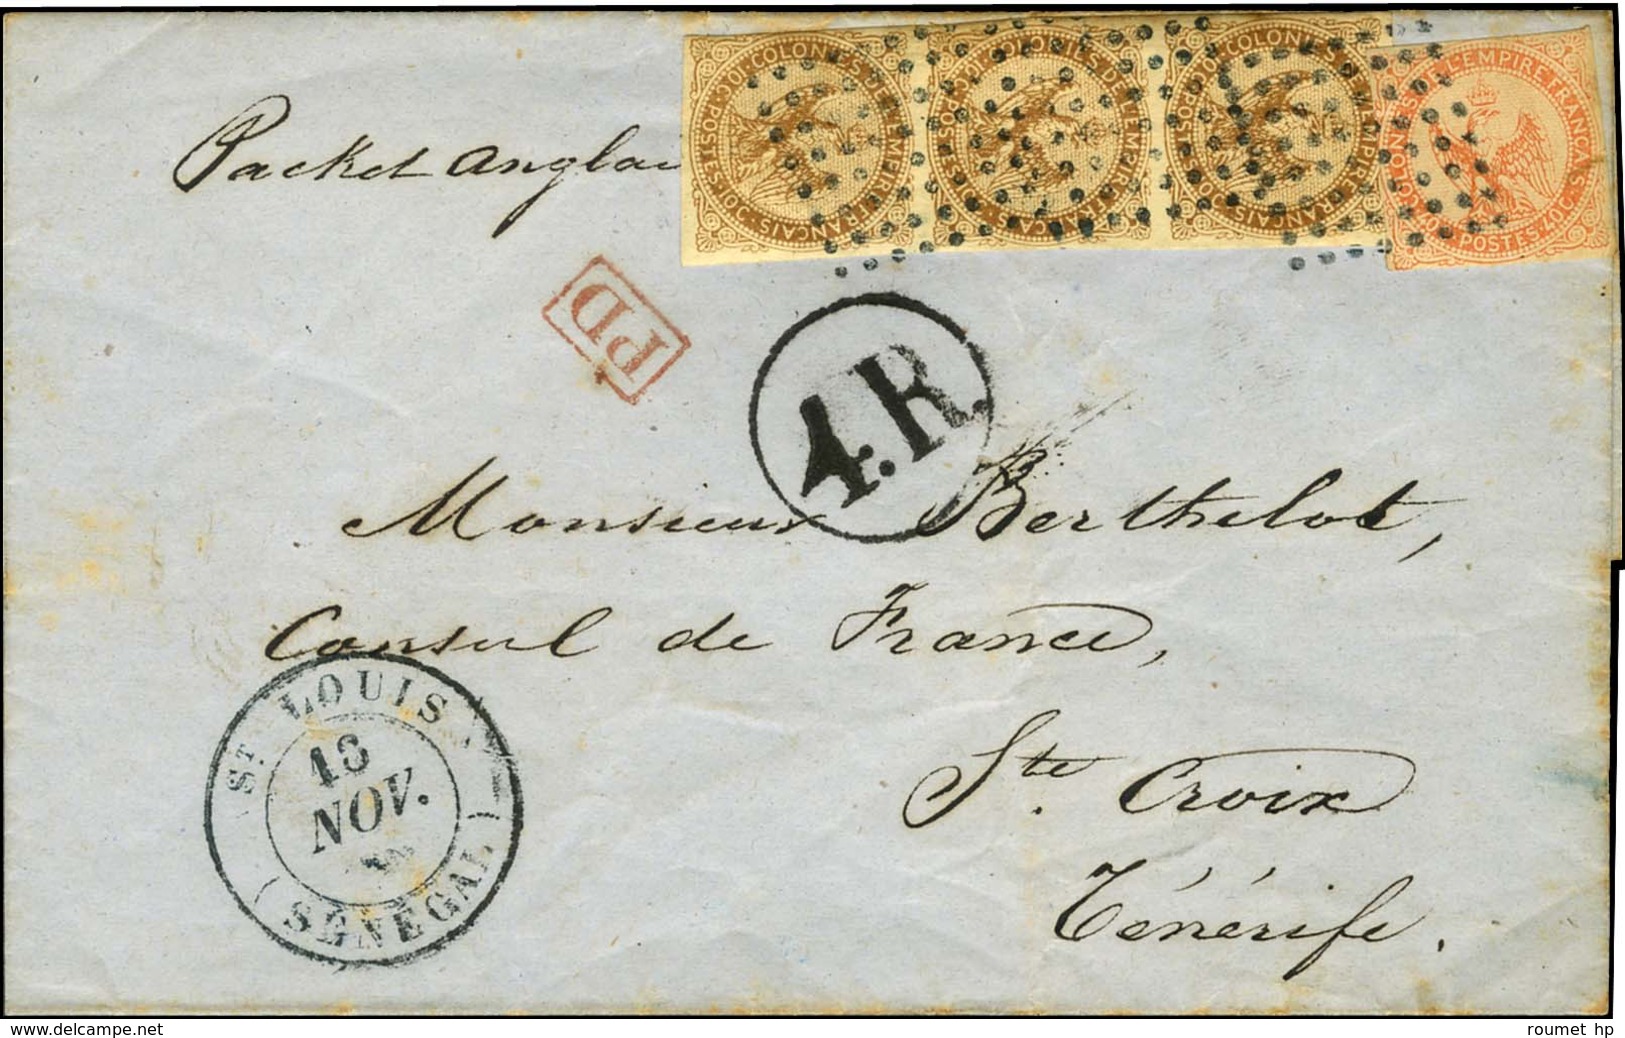 Packet anglai
COLONIES DE L'EMPIRE FRANÇAIS · POSTES · 10C
COLONIES DE L'EMPIRE FRANÇAIS · POSTES · 10C
COLONIES DE L'EMPIRE FRANÇAIS · POSTES · 10C
COLONIES DE L'EMPIRE FRANÇAIS · POSTES · 40C
PD
4.R.
Monsieur Berthelot,
Consul de France,
Ste. Croix
Ténérife.
ST LOUIS
13
NOV.
(SÉNÉGAL)
www.delcampe.net
roumet hp